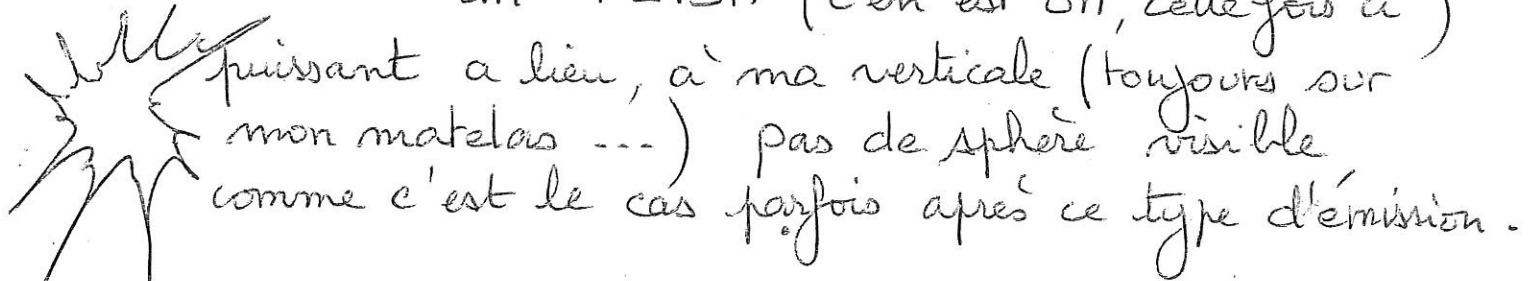 un FLASH (c'en est un, cette fois ci)
puissant a lieu, à ma verticale (toujours sur
mon matelas ---) pas de sphère visible
comme c'est le cas parfois après ce type d'émission.